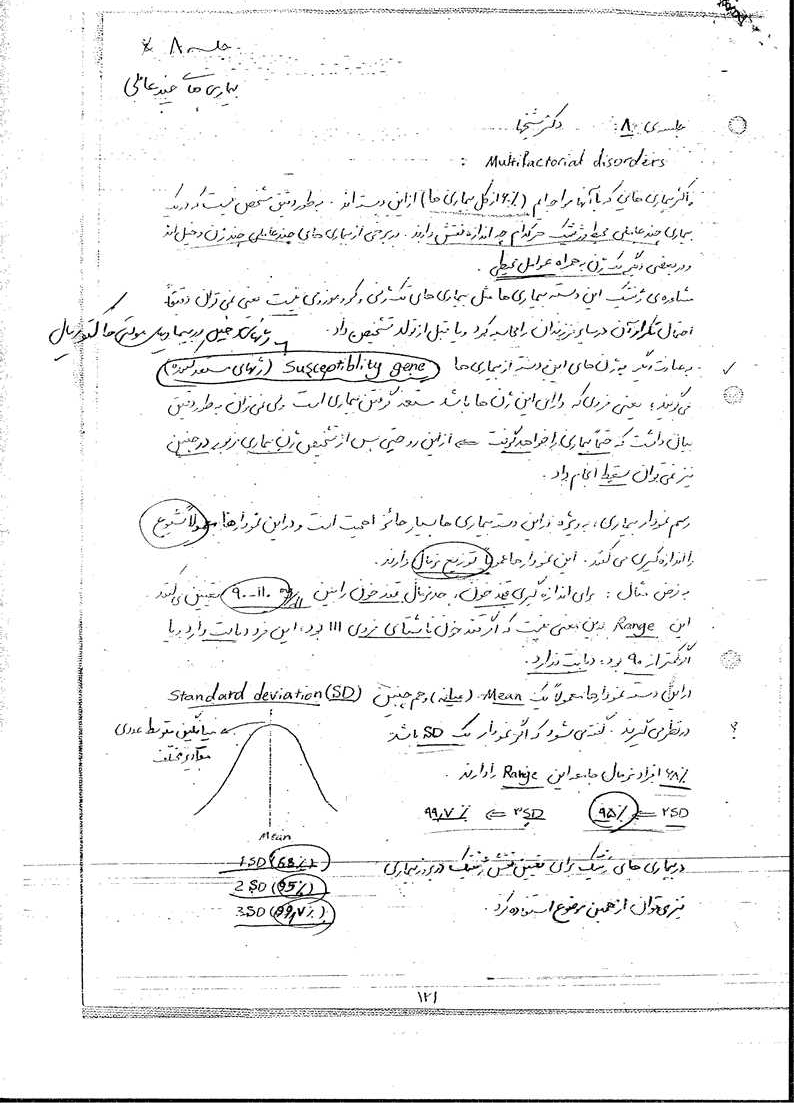 جلسه ۸
بیماری های چند عاملی
جلسه ی ۸: دکتر شیخها
Multifactorial disorders :
اکثر بیماری هایی که با آنها مواجه ایم (۶۰٪ از کل بیماری ها) از این دسته اند. به طور دقیق مشخص نیست که در یک
بیماری چند عاملی محیط و ژنتیک هر کدام چه اندازه نقش دارند. در برخی از بیماری های چند عاملی چند ژن دخیل اند
و در بعضی دیگر یک ژن به همراه عوامل محیطی.
مشاوره ی ژنتیک این دسته بیماری ها مثل بیماری های تک ژنی و کروموزومی نیست یعنی نمی توان دقیقاً
احتمال تکرار آن در سایر فرزندان را محاسبه کرد و یا قبل از تولد تشخیص داد.
ژنهای دخیل در بیماریهای مولتی فاکتوریال
به عبارت دیگر به ژن های این دسته از بیماری ها Susceptiblity gene (ژنهای مستعد کننده)
می گویند؛ یعنی فردی که دارای این ژن ها باشد مستعد گرفتن بیماری است ولی نمی توان به طور دقیق
بیان داشت که حتماً بیماری را خواهد گرفت ⇐ از این رو حتی پس از تشخیص ژن بیماری مزبور در جنین
نیز نمی توان سقط انجام داد.
رسم نمودار بیماری، به ویژه در این دسته بیماری ها بسیار حائز اهمیت است و در این نمودارها معمولاً شیوع
را اندازه گیری می کنند. این نمودارها عموماً توزیع نرمال دارند.
به فرض مثال: برای اندازه گیری قند خون، حد نرمال قند خون را بین ۹۰-۱۱۰ تعیین می کنند
این Range بدین معنی نیست که اگر قند خون ناشتای فردی ۱۱۱ بود، این فرد دیابت دارد و یا
اگر کمتر از ۹۰ بود، دیابت ندارد.
در این دسته نمودارها معمولاً یک Mean (میانه) و هم چنین Standard deviation (SD)
در نظر می گیرند. گفته می شود که اگر نمودار یک SD باشد
۶۸٪ افراد نرمال جامعه این Range را دارند.
۲SD ⇐ ۹۵٪ ۳SD ⇐ ۹۹,۷٪
میانگین متوسط عددی
مقادیر مختلف
Mean
1SD (68٪)
2SD (95٪)
3SD (99,7٪)
در بیماری های ژنتیک برای تعیین نقش ژنتیک در بروز بیماری
نیز می توان از همین موضوع استفاده کرد.
۱۲۱